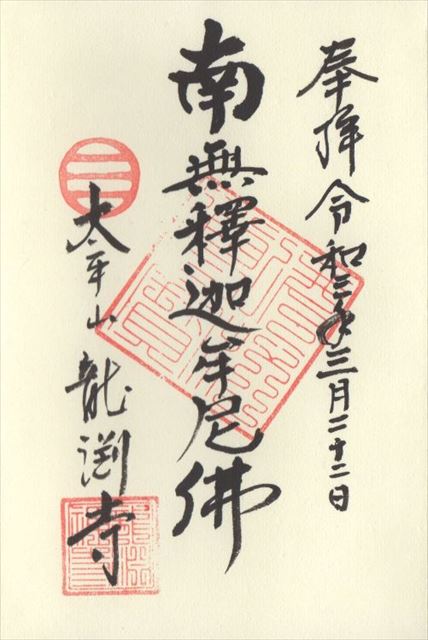 奉拝 令和三年三月二十二日
南無釋迦牟尼佛
太平山 龍渕寺